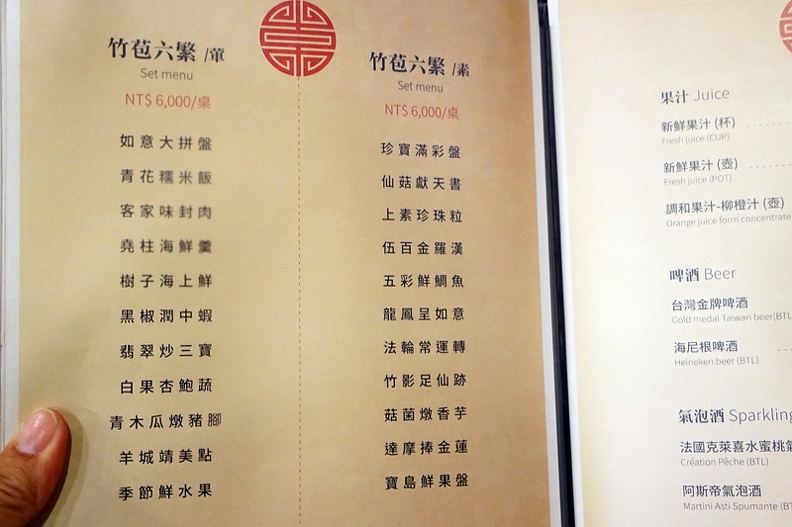 竹苞六繁 /葷
Set menu
NT$ 6,000/桌
如意大拼盤
青花糯米飯
客家味封肉
堯柱海鮮羹
樹子海上鮮
黑椒潤中蝦
翡翠炒三寶
白果杏鮑蔬
青木瓜燉豬腳
羊城靖美點
季節鮮水果
竹苞六繁 /素
Set menu
NT$ 6,000/桌
珍寶滿彩盤
仙菇獻天書
上素珍珠粒
伍百金羅漢
五彩鮮鯛魚
龍鳳呈如意
法輪常運轉
竹影足仙跡
菇菌燉香芋
達摩捧金蓮
寶島鮮果盤
果汁 Juice
新鮮果汁 (杯)
Fresh juice (CUP)
新鮮果汁 (壺)
Fresh juice (POT)
調和果汁-柳橙汁 (壺)
Orange juice form concentrate
啤酒 Beer
台灣金牌啤酒
Gold medal Taiwan beer(BTL)
海尼根啤酒
Heineken beer (BTL)
氣泡酒 Sparkling
法國克萊喜水蜜桃氣
Création Pêche (BTL)
阿斯帝氣泡酒
Martini Asti Spumante (BTL)